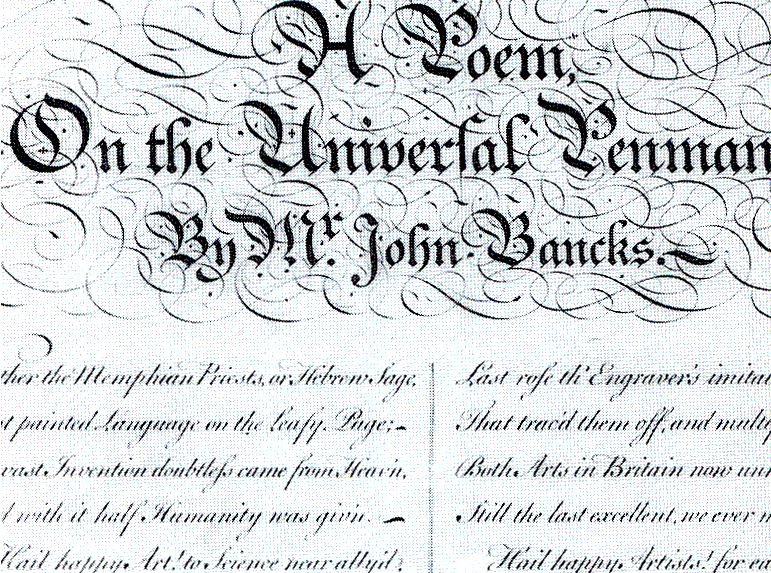 A Poem,
On the Univerſal Penman
By Mr. John Bancks.
ther the Memphian Priests, or Hebrew Sage,
t painted Language on the leafy Page;
vast Invention doubtleſs came from Heav'n,
d with it half Humanity was giv'n.
Hail happy Art! to Science near ally'd;
Last roſe th' Engraver's imita
That trac'd them off, and multip
Both Arts in Britain now
Still the last excellent, we ever
Hail happy Artists! for